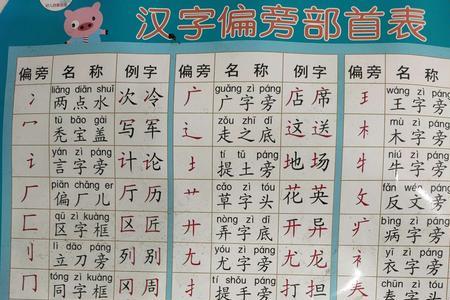 汉字偏旁部首表
偏旁 名称 例字 偏旁 名称 例字 偏旁 名称
冫 liǎng diǎn shuǐ 两点水 次冷 广 guǎng zì páng 广字旁 店席 王 wáng zì páng 王字旁
冖 tū bǎo gài 秃宝盖 写军 辶 zǒu zhī dǐ 走之底 这送 木 mù zì páng 木字旁
讠 yán zì páng 言字旁 计论 土 tí tǔ páng 提土旁 地场 牛 niú zì páng 牛字旁
厂 piān chǎng er 偏厂儿 厅历 艹 cǎo zì tóu 草字头 花英 攵 fǎn wén páng 反文旁
匚 qū zì kuàng 区字框 区匠 廾 nòng zì dǐ 弄字底 开异 疒 bìng zì páng 病字旁
刂 lì dāo páng 立刀旁 列别 尢 yóu zì páng 尤字旁 尤龙 衤 yī zì páng 衣字旁
冂 tóng zì kuàng 同字框 冈周 扌 tí shǒu páng 提手旁 打担